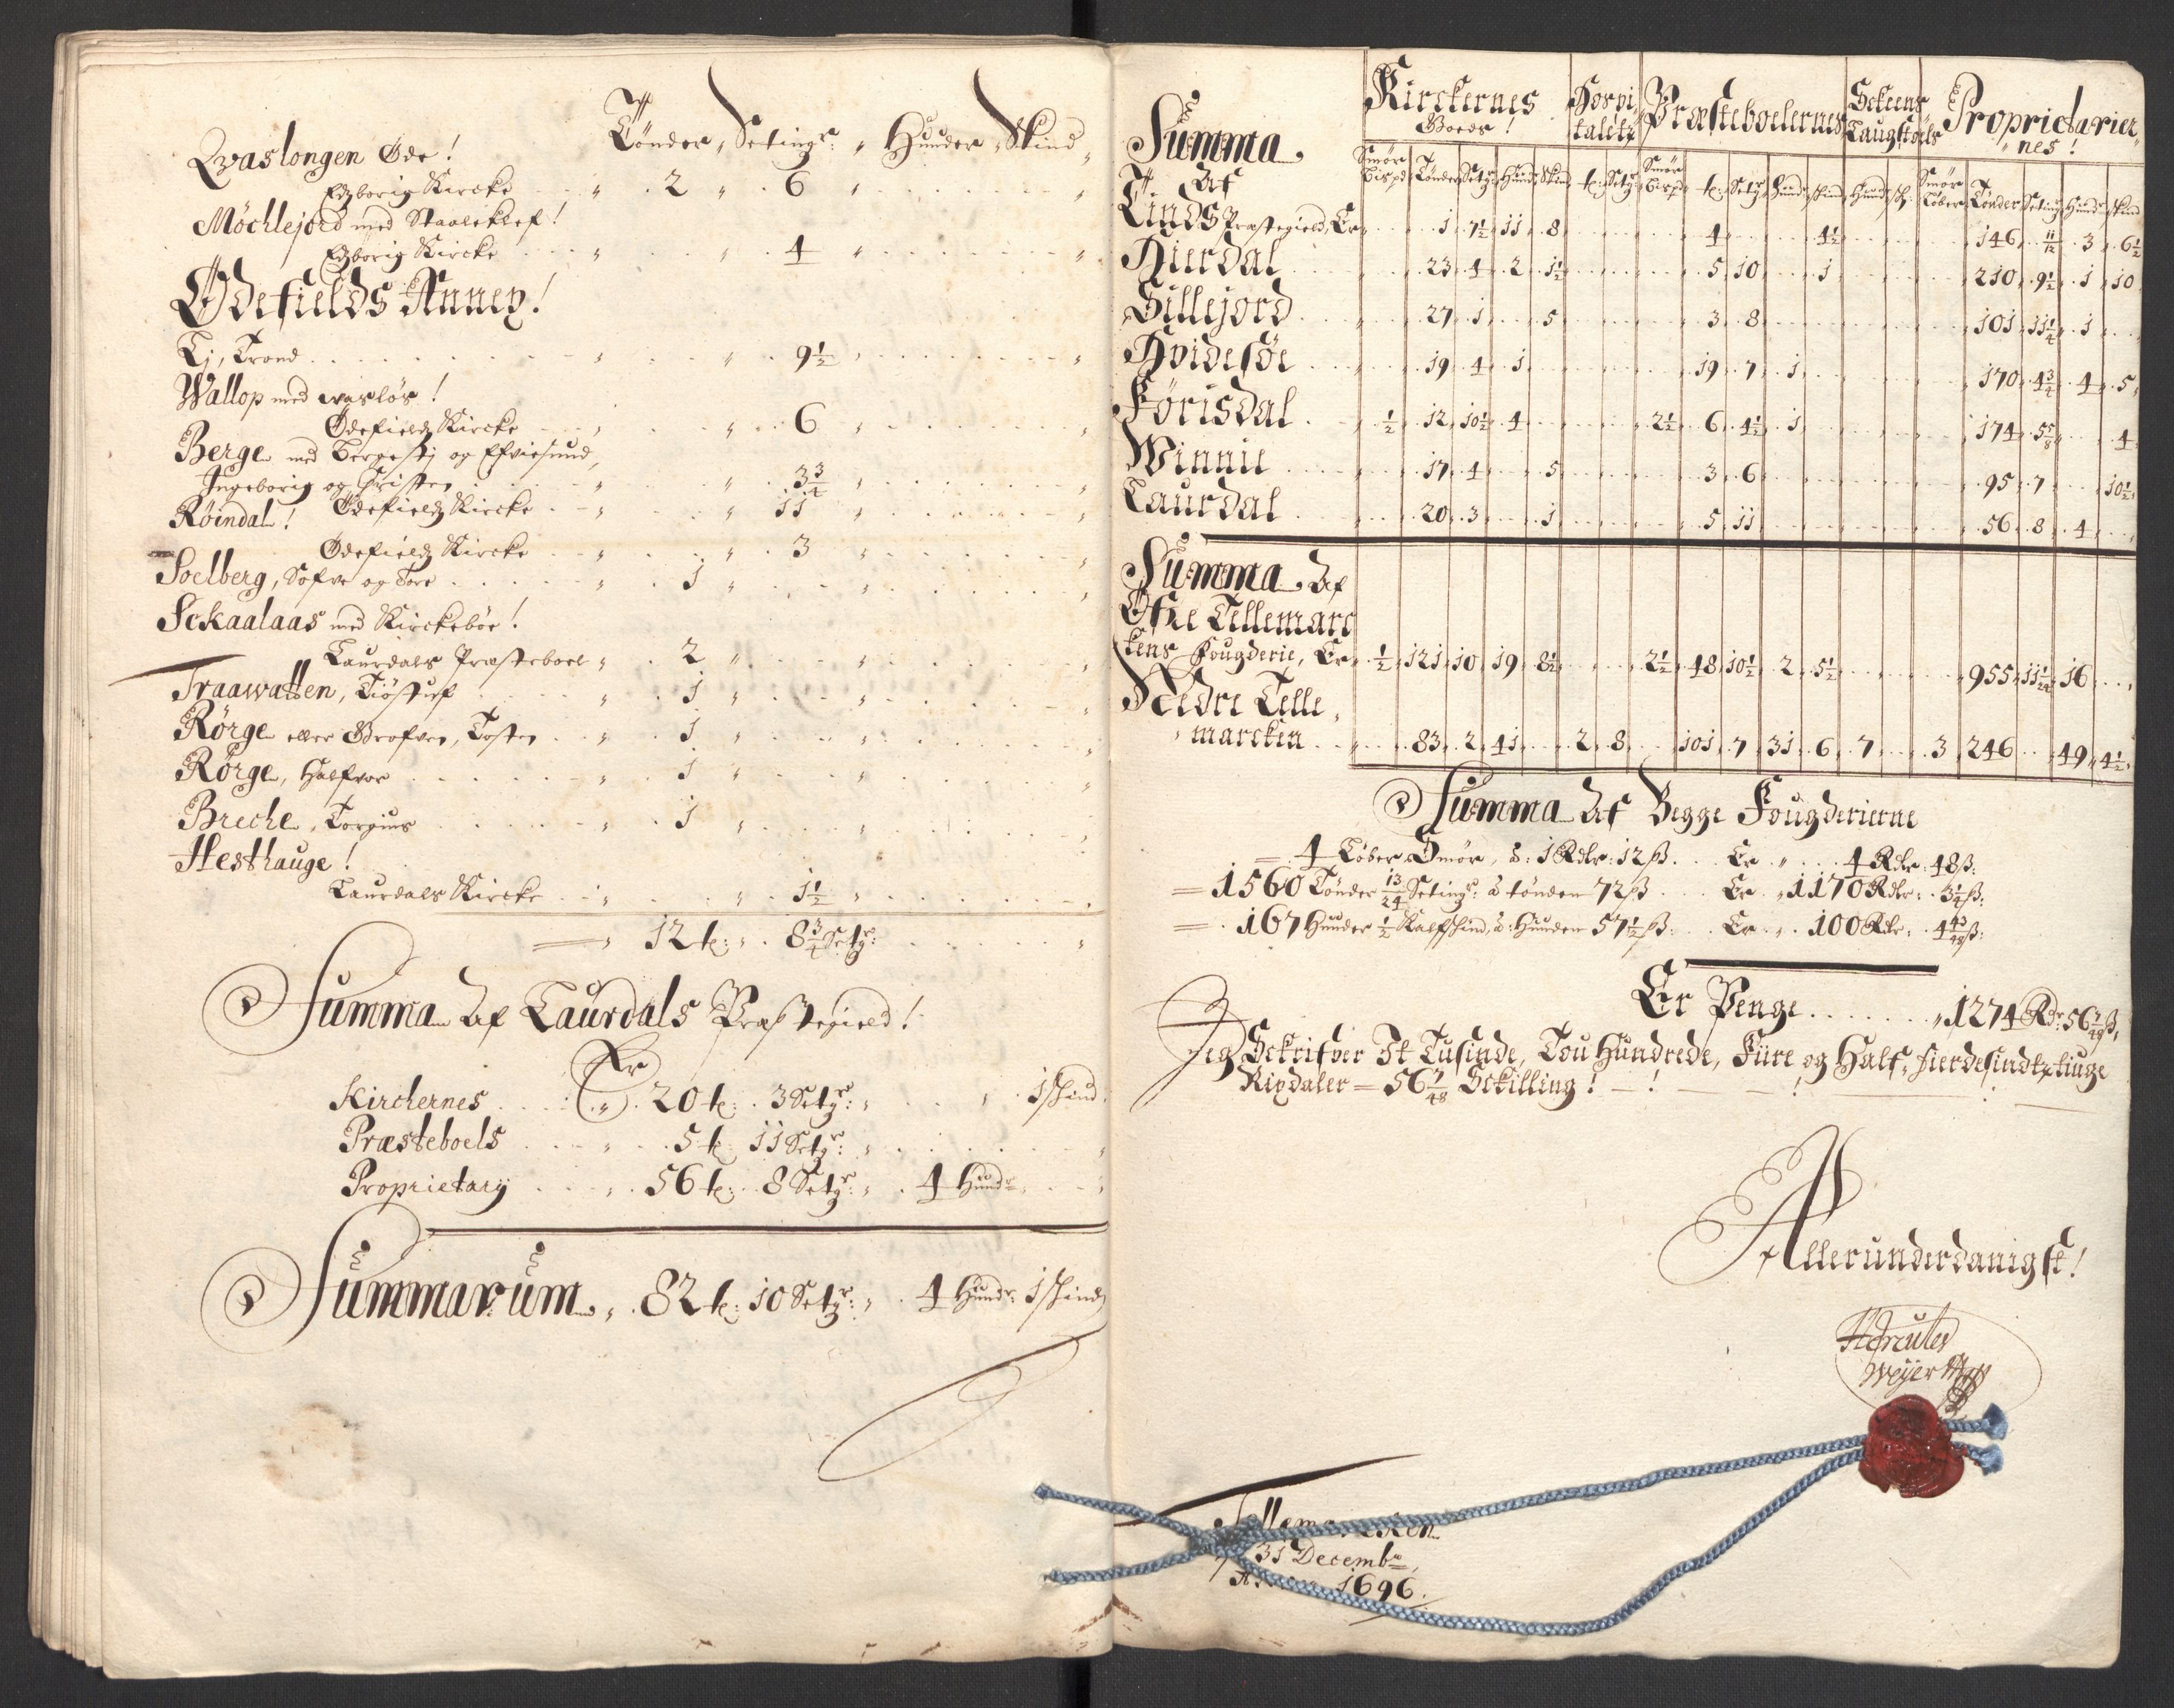 Tønder " Setingr: " Hunder " Skind "
Qvaslongen Øde!
Egborig Kircke " 2 " 6 " "
Möchlejord med Staaleklef!
Egborig Kircke " " 4 " "
Ødefields Annex!
Ej, Trond " " 9½ " "
Wallop med
Ødefieldz Kircke " " 6 " "
Berge med og
Ingeborig og Christen " " 3¾ "
Ødefieldz Kircke " " 11 "
Röindal!
Ødefieldz Kircke " " 3 "
Soelberg, Sofve og Tore " 1 " "
Sckaalaas med Kirckebøe!
Laurdals Præsteboel " 2 " "
Traawatten, Tiöstuef " 1 " "
Rörge eller Grofven, Tosten " 1 " "
Rörge, Halfvor " 1 " "
Breche, Torgius " 1 " "
Hesthauge!
Laurdals Kircke " " 1½ "
= " 12 t: " 8¾ Setgr:
Summa Af Laurdals Præstegield!
Er
Kirchernes " 20 t: 3 Setgr: " " 1 schind
Præsteboels " 5 t: 11 Setgr: "
Proprietary " 56 t: 8 Setgr: " 4 Hundr
Summarum " 82 t: 10 Setgr: " 4 Hundr: 1 schind
Kirckernes Goeds! Hospitaletz Præsteboelernes Sckeens Laugstoels Proprietariernes!
Summa Af
Smør Bispd Tønder Setgr Hund Skind t: Setgr Smør Bispd t: Setgr Hund schind Hund sch. Smør Løber Tønder Seting Hund Skind
Tinds Præstegield, Er 1 7½ 11 8 4 4½ 146 11/12 3 6½
Hierdal 23 4 2 1½ 5 10 1 210 9½ 1 10
Sillejord 27 1 5 3 8 101 11¼ 1
Hvidesøe 19 4 1 19 7 1 170 4¾ 4 5
Førisdal ½ 12 10½ 4 2½ 6 4½ 1 174 5⅝ 4
Winnie 17 4 5 3 6 95 7 10½
Laurdal 20 3 1 5 11 56 8 4
Summa Af
Øfre Tellemarc
kens Fougderie, Er ½ 121 10 19 8½ 2½ 48 10½ 2 5½ 955 11 1/24 16
Nedre Telle
marcken 83 2 41 2 8 101 7 31 6 7 3 246 49 4½
Summa Af Begge Fougderierne
= 4 Løber Smør, à: 1 Rdlr: 12 ß. Er " 4 Rdlr 48 ß:
= 1560 Tønder 13/24 Setingr: à tønden 72 ß Er " 1170 Rdlr: 3¼ ß:
= 167 Hunder ½ Kalfschind, à: Hunden 57½ ß: Er " 100 Rdlr: 4 43/48 ß:
Er Penge " 1274 Rdr: 56 7/48 ß,
Jeg Sckrifver Et Tusinde, Tou Hundrede, Fiire og Half-fierdesindztiuge
Rixdaler = 56 7/48 Sckilling!
Allerunderdanigst!
Hercules
Weyer
Tellemarcken
31 Decembr
1696.